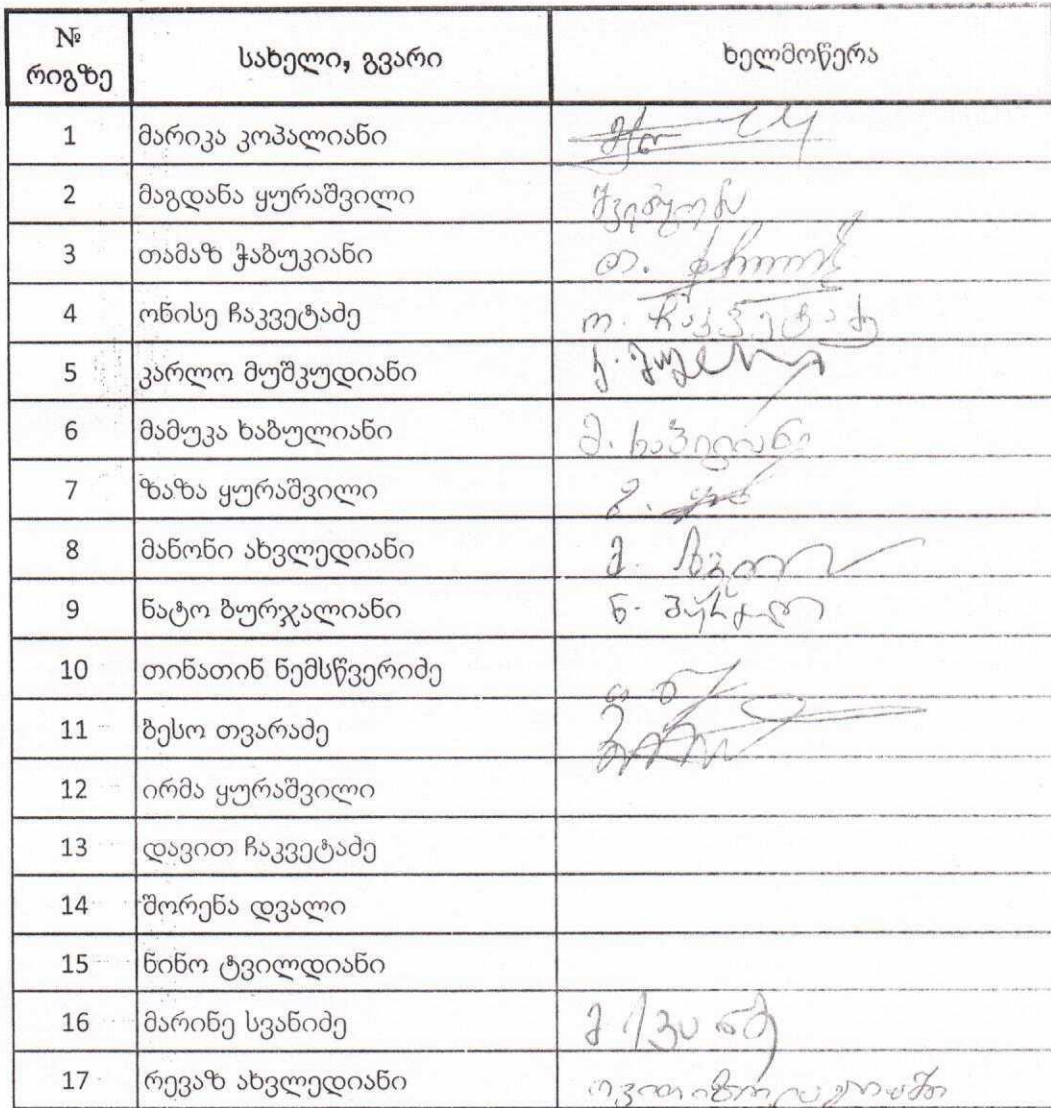 № რიგზე სახელი, გვარი ხელმოწერა
1 მარიკა კოპალიანი
2 მაგდანა ყურაშვილი
3 თამაზ ჭაბუკიანი თ.
4 ონისე ჩაკვეტაძე ო. ჩაკვეტაძე
5 კარლო მუშკუდიანი კ.
6 მამუკა ხაბულიანი მ.
7 ზაზა ყურაშვილი ზ.
8 მანონი ახვლედიანი მ.
9 ნატო ბურჯალიანი ნ.
10 თინათინ ნემსწვერიძე
11 ბესო თვარაძე
12 ირმა ყურაშვილი
13 დავით ჩაკვეტაძე
14 შორენა დვალი
15 ნინო ტვილდიანი
16 მარინე სვანიძე მ
17 რევაზ ახვლედიანი